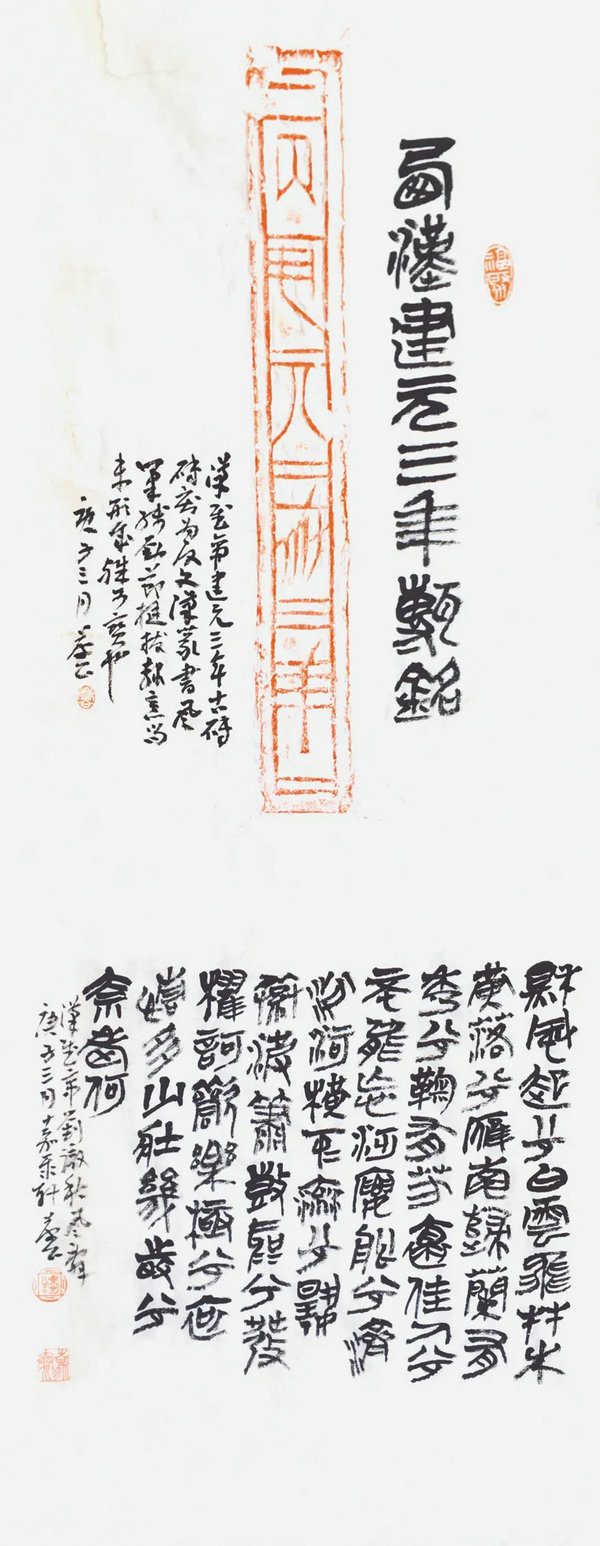 西漢建元三年甎銘
漢武帝建元三年古磚
磚文為反文漢篆書風
筆線勁節挺拔隸意尚
未形成殊可寶也
庚子三月
秋風起兮白雲飛艸木
黃落兮雁南歸蘭有
秀兮鞠有芳懷佳人兮
不能忘泛樓船兮濟
汾河橫中流兮揚
素波簫鼓鳴兮發
櫂歌歡樂極兮哀
情多少壯幾時兮
奈老何
漢武帝劉徹秋風辭
庚子三月嘉